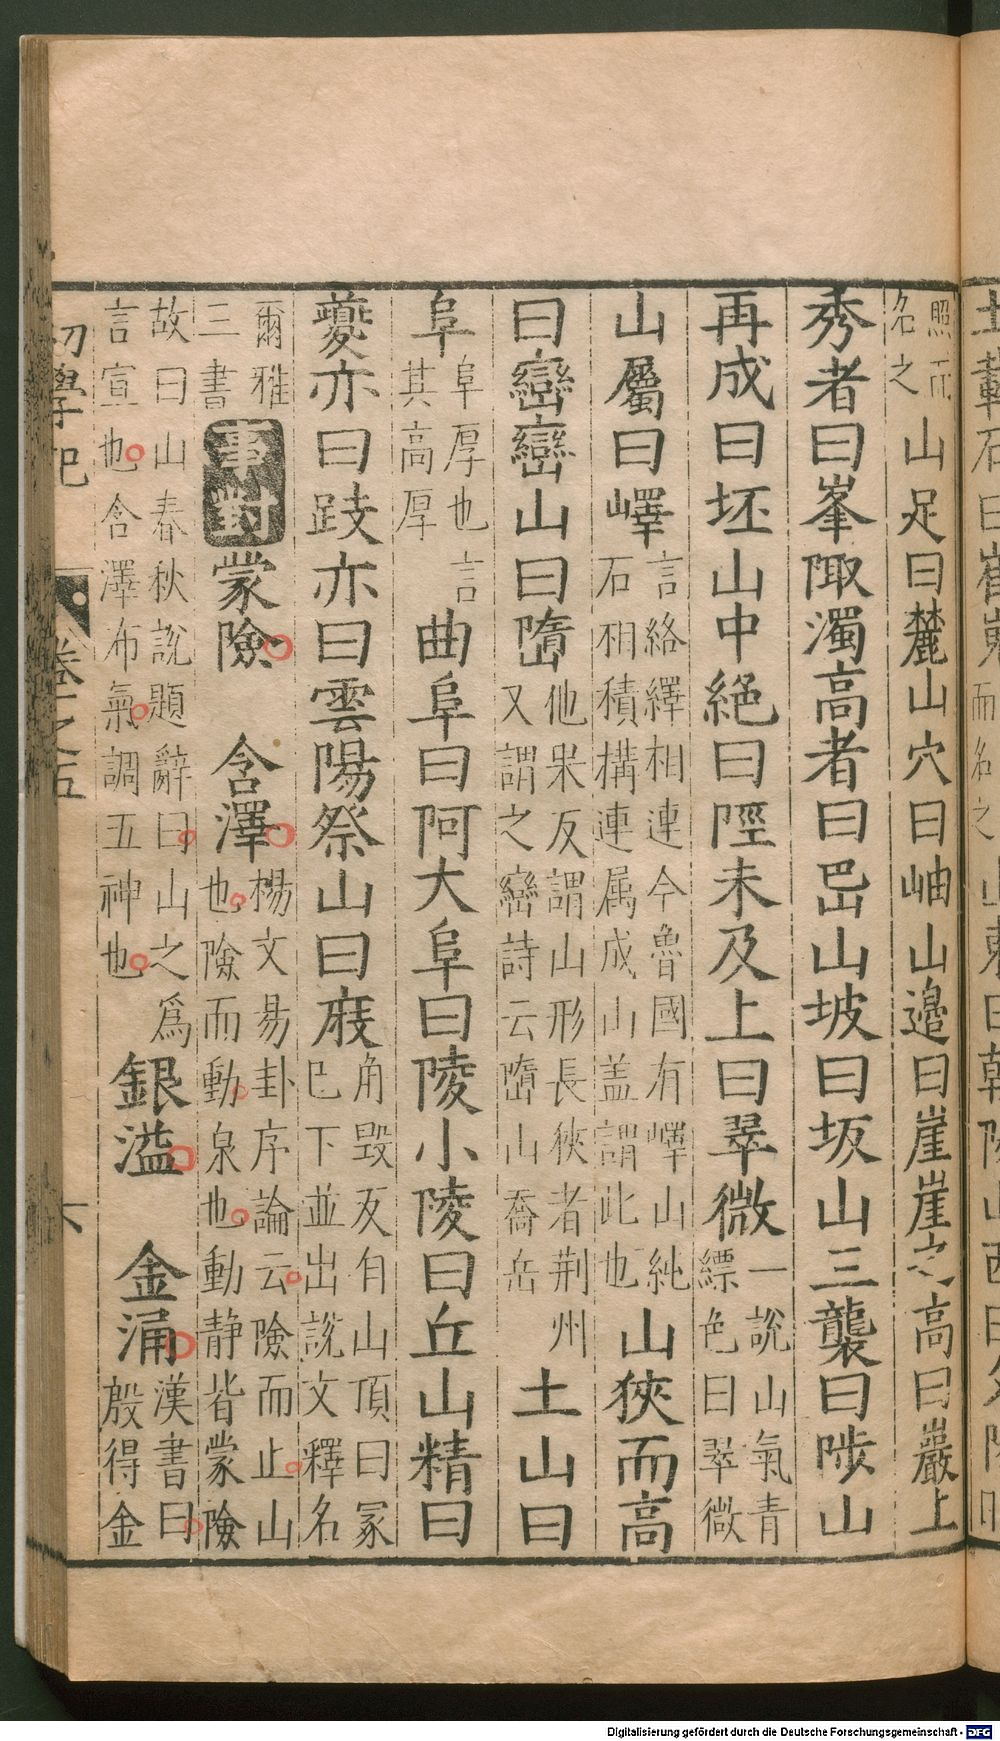 照而名之山足曰麓山穴曰岫山邉曰崖崖之高曰巖上
秀者曰峯陬濁高者曰岊山坡曰坂山三襲曰陟山
再成曰坯山中絶曰陘未及上曰翠微一說山氣青縹色曰翠微
山屬曰嶧言絡繹相連今魯國有嶧山純石相積構連属成山盖謂此也山狹而高
曰巒巒山曰嶞他果反謂山形長狹者荆州又謂之巒詩云嶞山喬岳土山曰
阜阜厚也言其高厚曲阜曰阿大阜曰陵小陵曰丘山精曰
夔亦曰跂亦曰雲陽祭山曰庪角毀反有山頂曰冢巳下並出說文釋名
爾雅三書事對蒙險 含澤楊文易卦序論云險而止山也險而動泉也動静皆蒙險
故曰山春秋說題辭曰山之爲言宣也含澤布氣調五神也銀溢 金涌漢書曰殷得金
初學記 卷之五 六
土載石曰崔嵬而名之山東曰朝陽山西曰夕陽
Digitalisierung gefördert durch die Deutsche Forschungsgemeinschaft - DFG